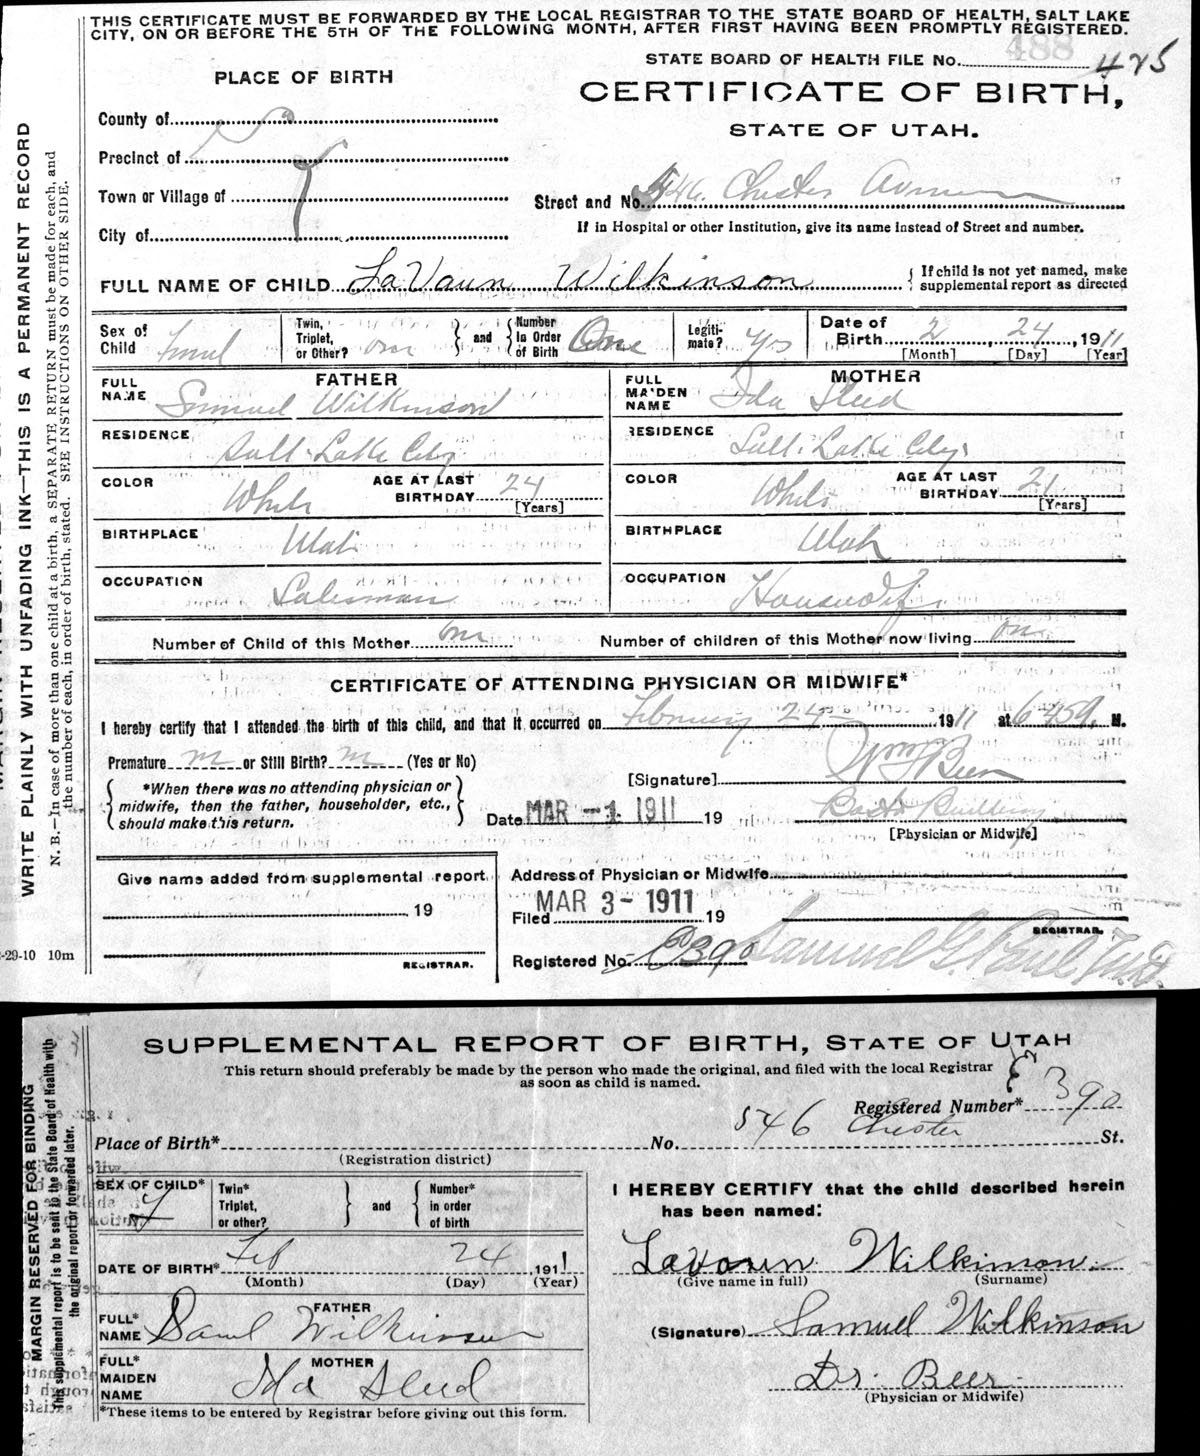 THIS CERTIFICATE MUST BE FORWARDED BY THE LOCAL REGISTRAR TO THE STATE BOARD OF HEALTH, SALT LAKE
CITY, ON OR BEFORE THE 5TH OF THE FOLLOWING MONTH, AFTER FIRST HAVING BEEN PROMPTLY REGISTERED.
488
STATE BOARD OF HEALTH FILE No. 425
PLACE OF BIRTH
CERTIFICATE OF BIRTH,
STATE OF UTAH.
County of
Precinct of
Town or Village of
City of
Street and No. 546 Chester Avenue
If in Hospital or other Institution, give its name instead of Street and number.
FULL NAME OF CHILD LaVaun Wilkinson
{ If child is not yet named, make
supplemental report as directed
Sex of Child
Twin, Triplet, or Other? } and { Number in Order of Birth One
Legitimate? Yes
Date of Birth 2 24, 1911
[Month] [Day] [Year]
FATHER
FULL NAME Samuel Wilkinson
RESIDENCE Salt Lake City
COLOR White AGE AT LAST BIRTHDAY 24 [Years]
BIRTHPLACE Utah
OCCUPATION Salesman
MOTHER
FULL MAIDEN NAME Ida Sleed
RESIDENCE Salt Lake City
COLOR White AGE AT LAST BIRTHDAY 21 [Years]
BIRTHPLACE Utah
OCCUPATION Housewife
Number of Child of this Mother one Number of children of this Mother now living one
CERTIFICATE OF ATTENDING PHYSICIAN OR MIDWIFE*
I hereby certify that I attended the birth of this child, and that it occurred on February 24 1911 at 6 45 A. M.
Premature or Still Birth? (Yes or No)
{ *When there was no attending physician or
midwife, then the father, householder, etc.,
should make this return. }
[Signature] Wm F Beer
Date MAR -1 1911 19
[Physician or Midwife]
Give name added from supplemental report
19
REGISTRAR.
Address of Physician or Midwife
Filed MAR 3- 1911 19
REGISTRAR.
Registered No. E390 Samuel G. Paul
MARGIN RESERVED FOR
WRITE PLAINLY WITH UNFADING INK—THIS IS A PERMANENT RECORD
N. B.—In case of more than one child at a birth, a SEPARATE RETURN must be made for each, and
the number of each, in order of birth, stated. SEE INSTRUCTIONS ON OTHER SIDE.
-29-10 10m
SUPPLEMENTAL REPORT OF BIRTH, STATE OF UTAH
This return should preferably be made by the person who made the original, and filed with the local Registrar
as soon as child is named.
Registered Number* E 390
Place of Birth* No. 546 Chester St.
(Registration district)
SEX OF CHILD* F
Twin* Triplet, or other? } and { Number* in order of birth
DATE OF BIRTH* Feb 24 1911
(Month) (Day) (Year)
FATHER
FULL* NAME Saml Wilkinson
MOTHER
FULL* MAIDEN NAME Ida Sleed
*These items to be entered by Registrar before giving out this form.
I HEREBY CERTIFY that the child described herein
has been named:
LaVaun Wilkinson
(Give name in full) (Surname)
(Signature) Samuel Wilkinson
Dr. Beer
(Physician or Midwife)
MARGIN RESERVED FOR BINDING
This supplemental report is to be sent to the State Board of Health with
the original report or forwarded later.